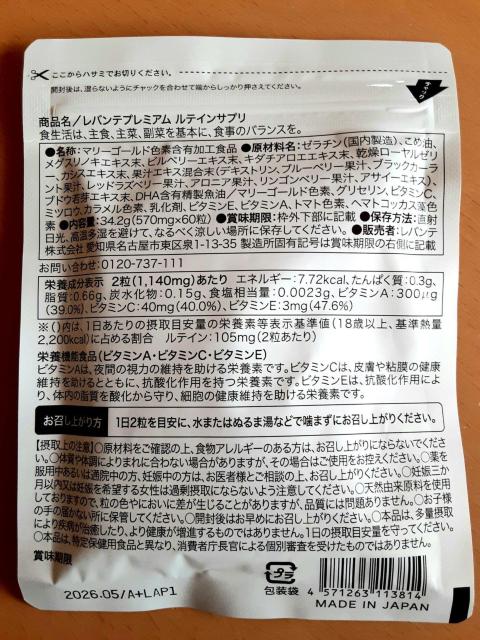 ここからハサミでお切りください。
開封後は、湿らないようにチャックを合わせて端からしっかり押さえてください。
チャック
商品名／レバンテプレミアム ルテインサプリ
食生活は、主食、主菜、副菜を基本に、食事のバランスを。
●名称:マリーゴールド色素含有加工食品 ●原材料名:ゼラチン(国内製造)、こめ油、
メグスリノキエキス末、ビルベリーエキス末、キダチアロエエキス末、乾燥ローヤルゼリ
ー、カシスエキス末、果汁エキス混合末(デキストリン、ブルーベリー果汁、ブラックカーラ
ント果汁、レッドラズベリー果汁、アロニア果汁、リンゴンベリー果汁、アサイーエキス)、
ブドウ若芽エキス末、DHA含有精製魚油／マリーゴールド色素、グリセリン、ビタミンC、
ミツロウ、カラメル色素、乳化剤、ビタミンE、ビタミンA、トマト色素、ヘマトコッカス藻色
素 ●内容量:34.2g(570mg×60粒) ●賞味期限:枠外下部に記載 ●保存方法:直射
日光、高温多湿を避けて、なるべく涼しい場所に保存してください。●販売者:レバンテ
株式会社 愛知県名古屋市東区泉1-13-35 製造所固有記号は賞味期限の右側に記載
お問い合わせ:0120-737-111
栄養成分表示 2粒(1,140mg)あたり エネルギー:7.72kcal、たんぱく質:0.3g、
脂質:0.66g、炭水化物:0.15g、食塩相当量:0.0023g、ビタミンA:300μg
(39.0%)、ビタミンC:40mg(40.0%)、ビタミンE:3mg(47.6%)
※( )内は、1日あたりの摂取目安量の栄養素等表示基準値(18歳以上、基準熱量
2,200kcal)に占める割合 ルテイン:105mg(2粒あたり)
栄養機能食品(ビタミンA・ビタミンC・ビタミンE)
ビタミンAは、夜間の視力の維持を助ける栄養素です。ビタミンCは、皮膚や粘膜の健康
維持を助けるとともに、抗酸化作用を持つ栄養素です。ビタミンEは、抗酸化作用によ
り、体内の脂質を酸化から守り、細胞の健康維持を助ける栄養素です。
お召し上がり方 1日2粒を目安に、水またはぬるま湯などで噛まずにお召し上がりください。
【摂取上の注意】○原材料をご確認の上、食物アレルギーのある方は、お召し上がりにならないでくださ
い。○体質や体調によりまれに合わない場合がありますが、その場合はご使用をお控えください。○薬を
服用中あるいは通院中の方、妊娠中の方は、お医者様とご相談の上、お召し上がりください。○妊娠三か
月以内又は妊娠を希望する女性は過剰摂取にならないよう注意してください。○天然由来原料を使用
しておりますので、粒の色やにおいに差が生じることがありますが、品質には問題ありません。○お子様
の手の届かない所に保管してください。○開封後はお早めにお召し上がりください。○本品は、多量摂取
により疾病が治癒したり、より健康が増進するものではありません。1日の摂取目安量を守ってください。
○本品は、特定保健用食品と異なり、消費者庁長官による個別審査を受けたものではありません。
賞味期限
2026.05/A+LAP1
プラ
包装袋
4 571263 113814
MADE IN JAPAN